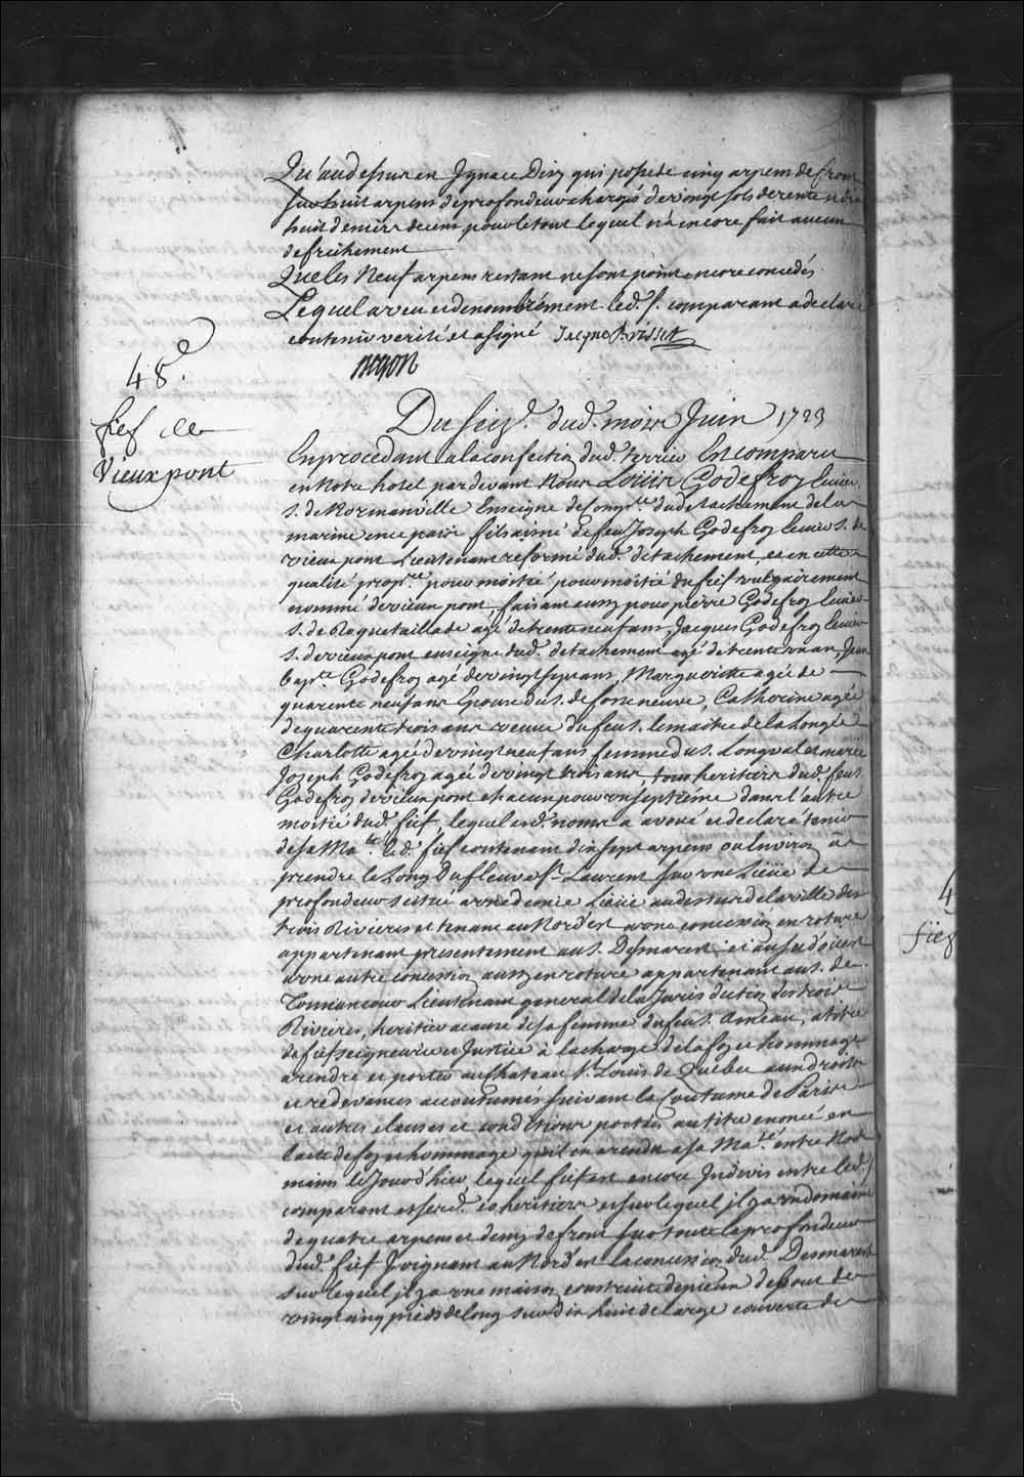 Qu'audessus en Ignace Disy qui possede cinq arpens de front
sur huit arpens de profondeur chargés de vingt sols de rente et dix
huit deniers de cens pour le tout lequel n'a encore fait aucun
defrichement
Que les Neuf arpens restant ne sont point encore concedés
Lequel aveu et denombrement led. S. comparant a declaré
contenir verité et a signé Jacque Brisset
Begon
48e.
fief de
Vieuxpont
Du seize. dud. mois Juin 1723
En procedant a la confection dud. terrier Est comparu
en Notre hotel pardevant Nous Loüis Godefroy Ecuier
S. de Normanville Enseigne de Compie du detachement de la
marine en ce païs fils aisné de feu Joseph Godefroy Ecuier S. de
vieux pont Lieutenant reformé dud. detachement, et en cette
qualité propre. pour moitié pour moitié du fief vulgairement
nommé de vieux pont, faisant aussy pour pierre Godefroy Ecuier
S. de Roquetaillade agé de trente neuf ans, Jacques Godefroy Ecuier
S. de vieux pont enseigne dud. detachement agé de trente un an, Jean
bapte. Godefroy agé de vingt sept ans, Marguerite agée de
quarente neuf ans Epouse du S. de fosseneuve, Catherine agée
de quarente trois ans veuve du feu S. lemaitre de la Longée
Charlotte agée de vingt neuf ans femme du S. Longval et marie
Joseph Godefroy agée de vingt trois ans tous heritiers dud. feu S.
Godefroy de vieux pont chacun pour un septiéme dans l'autre
moitié dud. fief, lequel esd. noms a avoué et declaré tenir
de sa Maté. led. fief contenant dix sept arpens ou Environ à
prendre le Long du fleuve St. Laurent sur une Lieüe de
profondeur scitué a une demie Lieüe audessus de la ville des
trois Rivieres et tenant au Nord'est a une concession en roture
appartenant presentement au S. Desmarest et au sud'oüest
a une autre concession aussy en roture appartenant au S. de
Tonnancour Lieutenant general de la Jurisdiction des trois
Rivieres, heritier a cause de sa femme du feu S. Ameau, a titre
de fief seigneurie et Justice à la charge de la foy et hommage
a rendre et porter au Chateau St. Louis de Quebec aux droits
et redevances accoutumés suivant la Coutume de Paris
et autres clauses et conditions portées au titre enoncé en
l'acte de foy et hommage qu'il en a rendu a sa Maté. entre Nos
mains le Jour d'hier, lequel fief est encore Indivis entre led. S.
comparant et sesd. coheritiers et sur lequel il y a un domaine
de quatre arpens et demy de front sur toute la profondeur
dud. fief Joignant au Nord'est la concession dud. Desmarest
sur lequel il y a une maison construite de pieux de bout de
vingt cinq pieds de long sur dix huit de large couverte de
4
fief